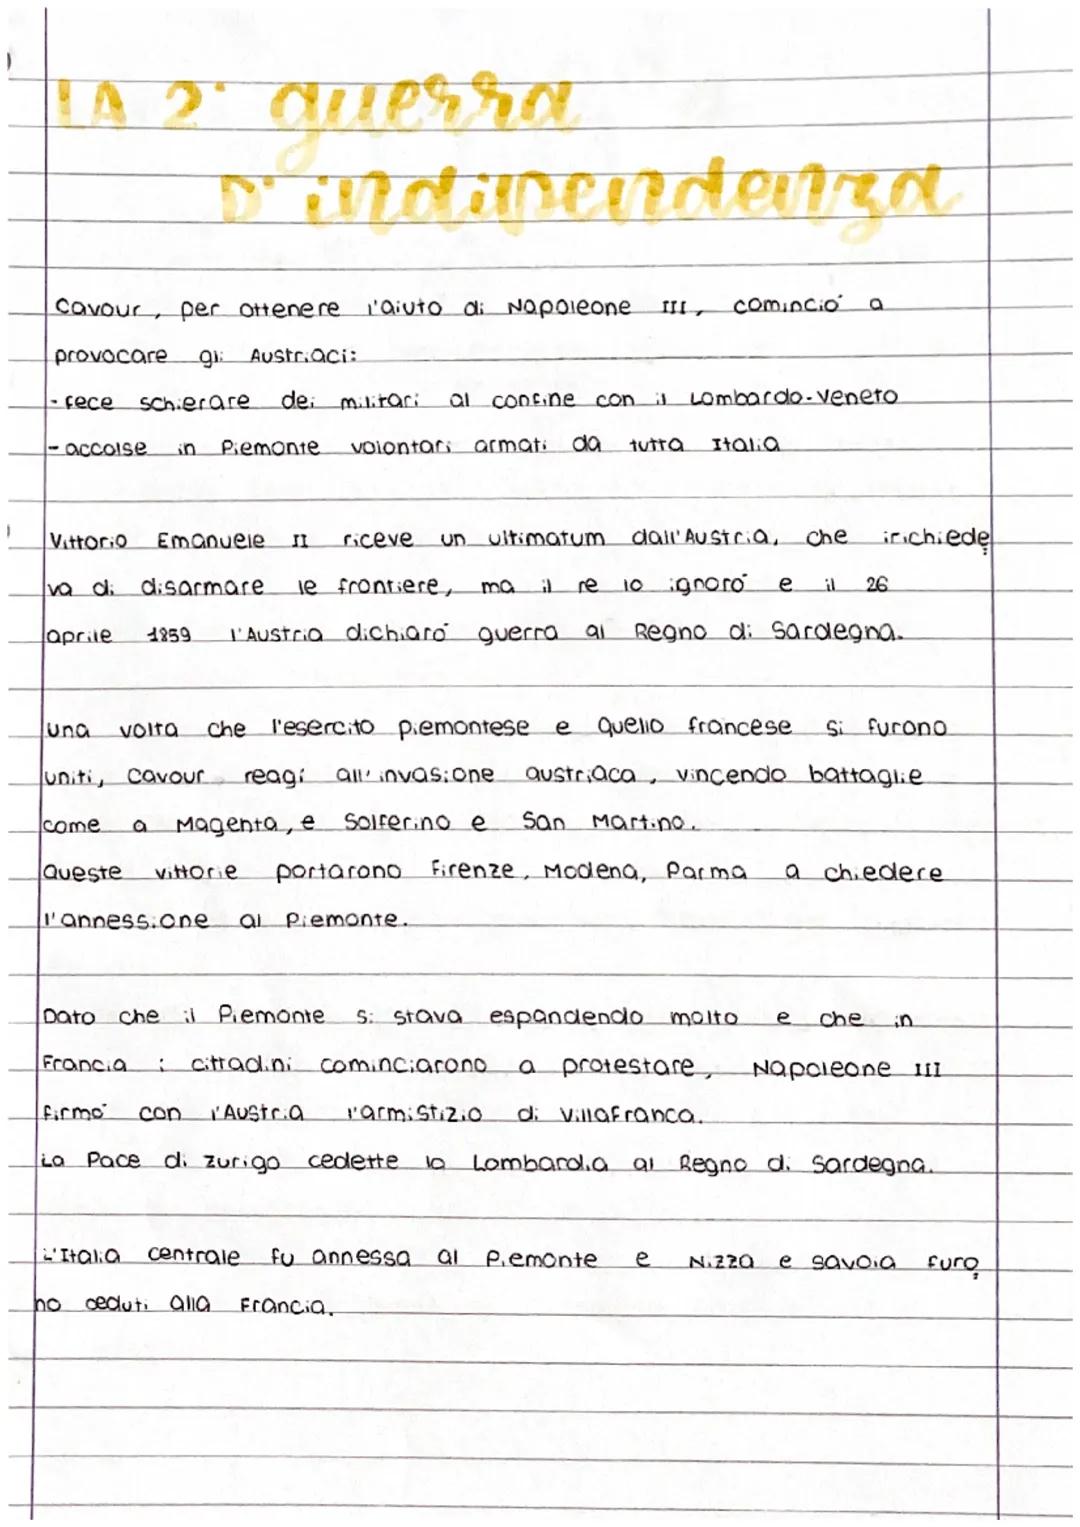 LA 2° guerra
D'indipendenza
Cavour, per ottenere l'aiuto di Napoleone III, cominciò a
provocare gli Austriaci:
- fece schierare dei militari al confine con il Lombardo-Veneto
- accolse in Piemonte volontari armati da tutta Italia
Vittorio Emanuele II riceve un ultimatum dall'Austria, che irichiede
va di disarmare le frontiere, ma il re lo ignorò e il 26
aprile 1859 l'Austria dichiarò guerra al Regno di Sardegna.
Una volta che l'esercito piemontese e quello francese si furono
uniti, Cavour reagì all'invasione austriaca, vincendo battaglie
come a Magenta, e Solferino e San Martino.
Queste vittorie portarono Firenze, Modena, Parma a chiedere
l'annessione al Piemonte.
Dato che il Piemonte si stava espandendo molto e che in
Francia i cittadini cominciarono a protestare, Napoleone III
firmò con l'Austria l'armistizio di Villafranca.
La Pace di Zurigo cedette la Lombardia al Regno di Sardegna.
L'Italia centrale fu annessa al Piemonte e Nizza e Savoia furo
no ceduti alla Francia.